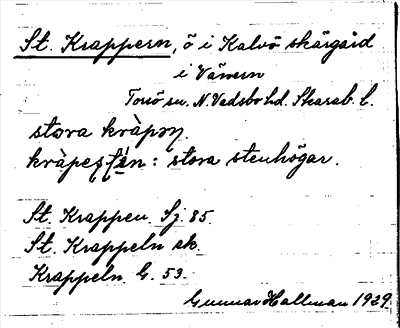 St. Krappern, ö i Kalvö skärgård
i Vänern
Torsö sn. N. Vadsbo hd. Skarab. l.
stora kràpəṇ
: stora stenhögar.
St. Krappen. Sj. 85.
St. Krappeln ak.
Krappeln. G. 53.
Gunnar Hallman 1929